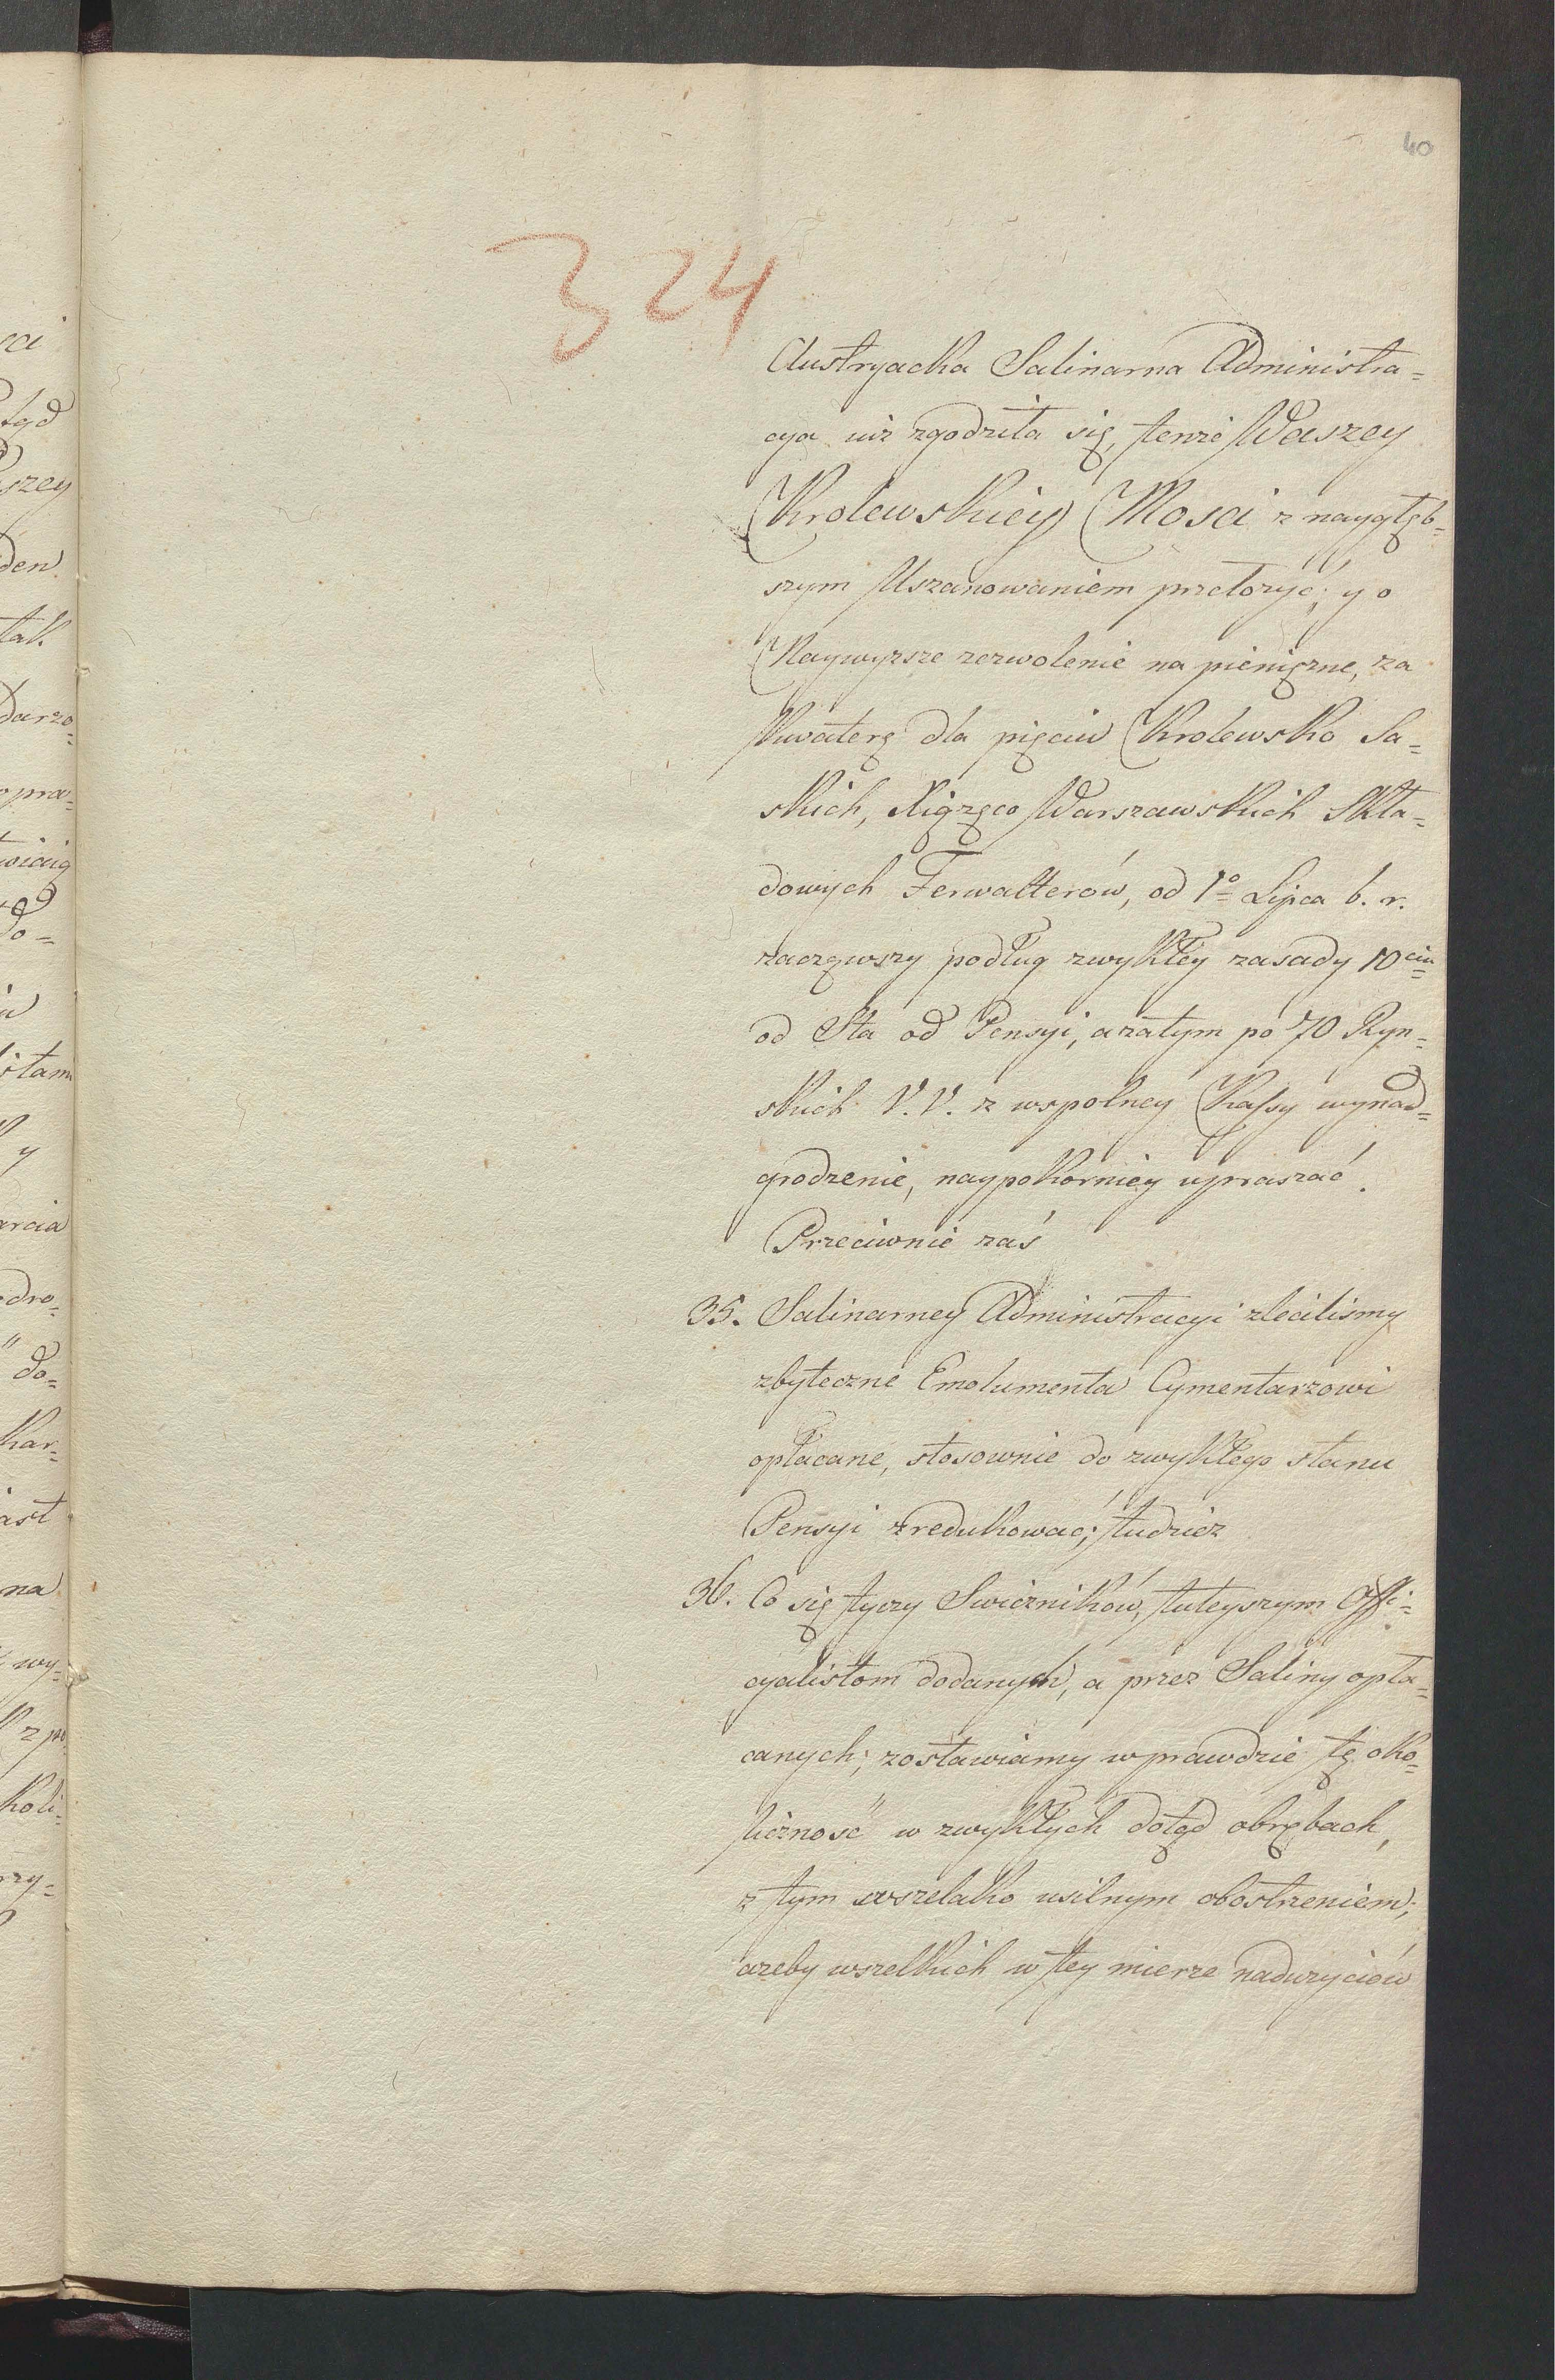 40
324
Austryacka Salinarna Administra=
cya iuż zgodziła się, tenże Waszey
Krolewskiey Mosci z naygłęb=
szym Uszanowaniem przełożyć; y o
Naywyższe zezwolenie na pieniężne, za
kwaterę dla pięciu Krolewsko Sa=
skich, Xiążęco Warszawskich Skła=
dowych Ferwalterów, od 1o Lipca b. r.
zacząwszy podług zwykłey zasady 10ciu
od Sta od Pensyi, a zatym po 70 Ryn=
skich V. V. z wspolney Kassy wynad=
grodzenie, naypokorniey upraszać.
Przeciwnie zaś
35. Salinarney Administracyi zleciliśmy
zbyteczne Emolumenta Cymentarzowi
opłacane, stosownie do zwykłego stanu
Pensyi zredukować; tudzież
36. Co się tyczy Swiczników, tuteyszym Offi=
cyalistom dodanych, a przez Saliny opła=
canych; zostawiamy wprawdzie tę oko=
liczność w zwykłych dotąd obrębach,
z tym wszelako usilnym obostrzeniem;
ażeby wszelkich w tey mierze nadużyciów